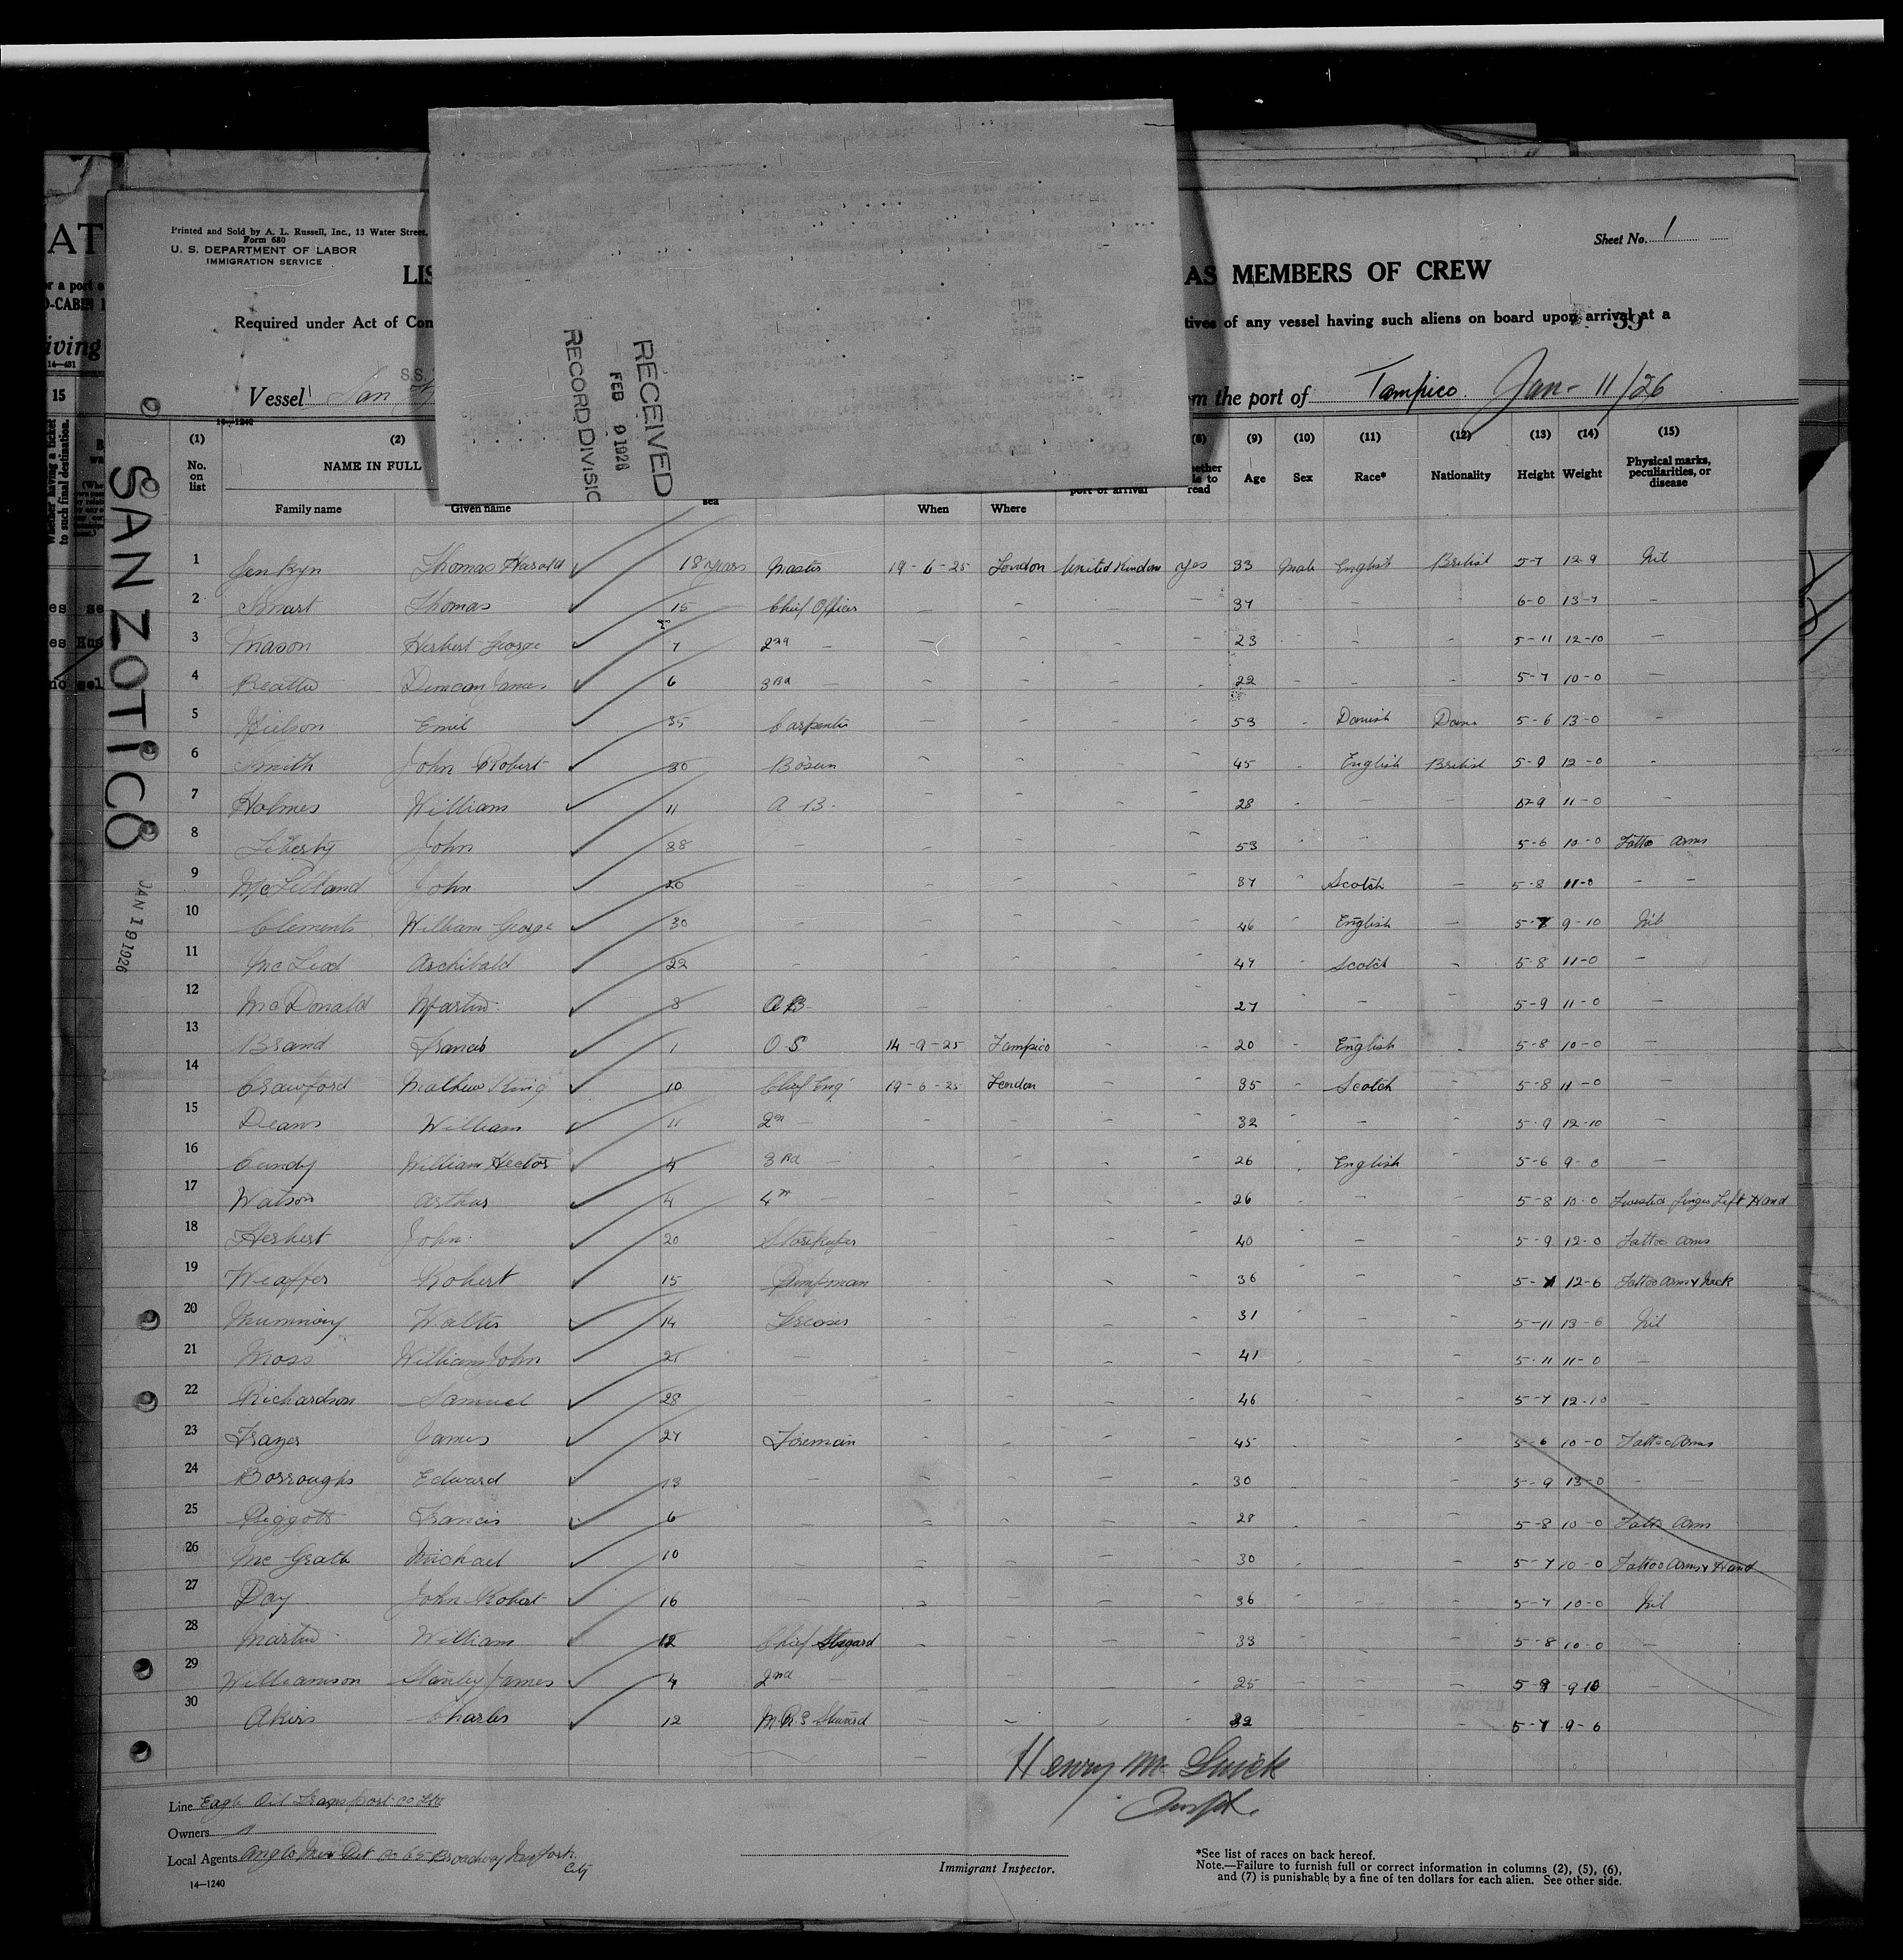 Printed and Sold by A. L. Russell, Inc., 13 Water Street,
Form 680
U. S. DEPARTMENT OF LABOR
IMMIGRATION SERVICE
Sheet No. 1
LIS AS MEMBERS OF CREW
Required under Act of Con tives of any vessel having such aliens on board upon arrival at a
39
S.S.
Vessel San m the port of Tampico. Jan - 11/26
RECEIVED
FEB 9 1926
RECORD DIVISIO
SAN ZOTICO
JAN 19 1926
14-1240
(1) (2) (8) (9) (10) (11) (12) (13) (14) (15)
No. on list NAME IN FULL Age Sex Race* Nationality Height Weight Physical marks, peculiarities, or disease
Family name Given name sea When Where port of arrival read
1 Jenkyn Thomas Harold 18 years Master 19-6-25 London United Kindom Yes 33 Male English British 5-7 12-9 Nil
2 Smart Thomas 15 Chief Officer — 37 6-0 13-7 —
3 Mason Herbert George 7 2nd — 23 5-11 12-10 —
4 Beattie Duncan James 6 3rd — 22 5-7 10-0 —
5 Nielson Emil 35 Carpenter — 53 Danish Dane 5-6 13-0 —
6 Smith John Robert 30 Bosun — 45 English British 5-9 12-0 -
7 Holmes William 11 A B - 28 — 5-9 11-0 —
8 John 38 — 53 5-6 10-0 Tatto Arms
9 McLelland John 20 — 37 Scotch — 5-8 11-0 — —
10 Clements William George 30 — 46 English — 5-7 9-10 Nil
11 McLeod Archibald 22 — 47 Scotch - 5-8 11-0 —
12 McDonald Martin 8 A B — 27 — 5-9 11-0 —
13 Brand Francis 1 O S 14-9-25 Tampico - 20 English 5-8 10-0 —
14 Crawford Mathew King 10 Chief Eng 19-6-25 London - 35 Scotch 5-8 11-0 —
15 Deans William 11 2nd — 32 — 5-9 12-10 —
16 Cundy William Hector 4 3rd — 26 English 5-6 9-0 —
17 Watson Arthur 4 4th — 26 — 5-8 10-0 Twisted finger Left Hand
18 Herbert John 20 Storekeeper — 40 — 5-9 12-0 Tattoo Arms
19 Robert 15 Pumpman — 36 — 5- 12-6 Tattoo Arms & Neck
20 Walter 14 Greaser — 31 — 5-11 13-6 Nil
21 Moss William John 21 — 41 — 5-11 11-0 —
22 Richardson Samuel 28 — 46 — 5-7 12-10 —
23 Frazer James 27 Fireman — 45 — 5-6 10-0 Tattoo Arms
24 Borroughs Edward 13 — 30 — 5-9 13-0 - —
25 Piggott Francis 6 — 28 — 5-8 10-0 Tatto Arms
26 McGrath Michael 10 — 30 — 5-7 10-0 Tattoo Arms & Hand
27 Day John Robert 16 — 36 — 5-7 10-0 Nil
28 Martin William 12 Chief — 33 — 5-8 10-0 —
29 Williamson Stanley James 4 2nd — 25 — 5-9 9-10 —
30 Akers Charles 12 Steward — 32 — 5-7 9-6
Henry M.
Inspt.
Line Eagle Oil Transport Co Ltd
Owners "
Local Agents Anglo Mex Pet Co 65 Broadway New York City
Immigrant Inspector.
*See list of races on back hereof.
Note.—Failure to furnish full or correct information in columns (2), (5), (6),
and (7) is punishable by a fine of ten dollars for each alien. See other side.
14—1240